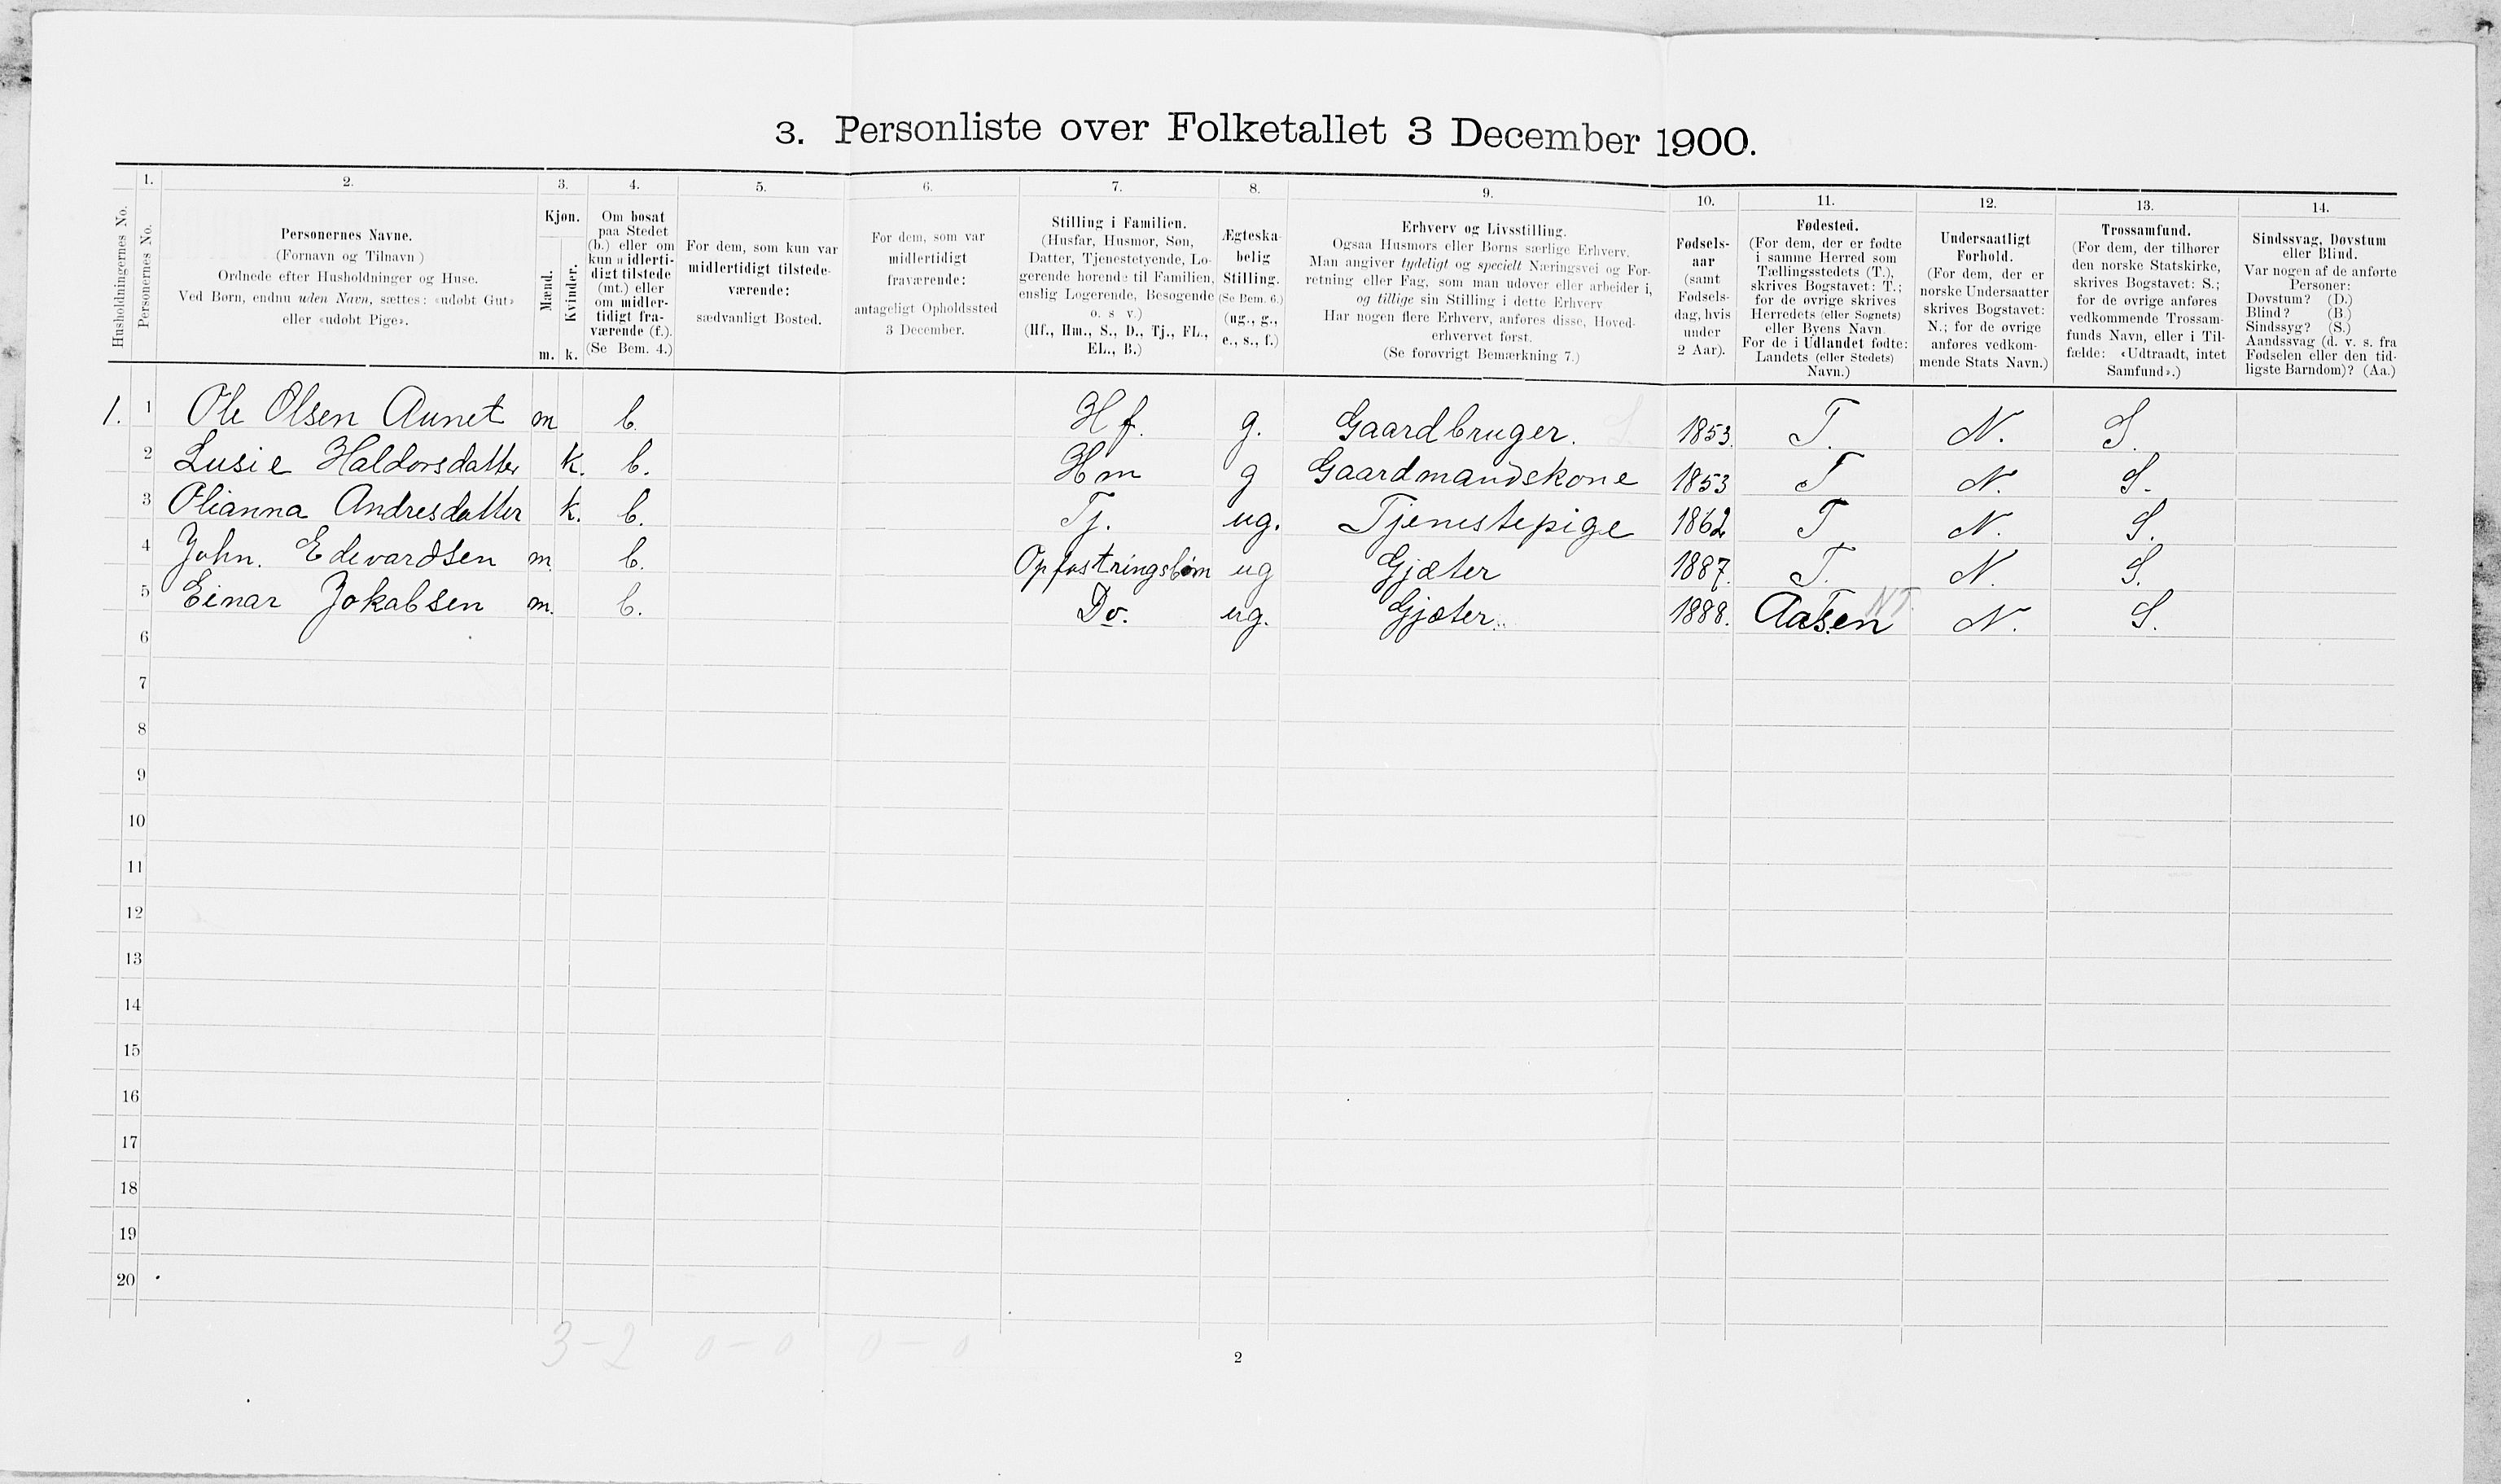 3. Personliste over Folketallet 3 December 1900.
1. 2. 3. 4. 5. 6. 7. 8. 9. 10. 11. 12. 13. 14.
Husholdningernes No.
Personernes No.
Personernes Navne.
(Fornavn og Tilnavn )
Ordnede efter Husholdninger og Huse.
Ved Børn, endnu uden Navn, sættes: «udøbt Gut»
eller «udøbt Pige».
Kjøn.
Mænd.
Kvinder.
m. k.
Om bosat
paa Stedet
(b.) eller om
kun midlerti-
digt tilstede
(mt.) eller
om midler-
tidigt fra-
værende (f.).
(Se Bem. 4.)
For dem, som kun var
midlertidigt tilstede-
værende:
sædvanligt Bosted.
For dem, som var
midlertidigt
fraværende:
antageligt Opholdssted
3 December.
Stilling i Familien.
(Husfar, Husmor, Søn,
Datter, Tjenestetyende, Lo-
gerende hørende til Familien,
enslig Logerende, Besøgende
o. s v.)
(Hf., Hm., S., D., Tj., FL.,
EL., B.)
Ægteska-
belig
Stilling.
(Se Bem. 6.)
(ug., g.,
e., s., f.)
Erhverv og Livsstilling.
Ogsaa Husmors eller Børns særlige Erhverv.
Man angiver tydeligt og specielt Næringsvei og For-
retning eller Fag, som man udøver eller arbeider i,
og tillige sin Stilling i dette Erhverv
Har nogen flere Erhverv, anføres disse, Hoved-
erhvervet først.
(Se forøvrigt Bemærkning 7.)
Fødsels-
aar
(samt
Fødsels-
dag, hvis
under
2 Aar).
Fødested.
(For dem, der er fødte
i samme Herred som
Tællingsstedets (T.),
skrives Bogstavet: T.;
for de øvrige skrives
Herredets (eller Sognets)
eller Byens Navn
For de i Udlandet fødte:
Landets (eller Stedets)
Navn.)
Undersaatligt
Forhold.
(For dem, der er
norske Undersaatter
skrives Bogstavet:
N.; for de øvrige
anføres vedkom-
mende Stats Navn.)
Trossamfund.
(For dem, der tilhører
den norske Statskirke,
skrives Bogstavet: S.;
for de øvrige anføres
vedkommende Trossam-
funds Navn, eller i Til-
fælde: «Udtraadt, intet
Samfund».)
Sindssvag, Døvstum
eller Blind.
Var nogen af de anførte
Personer:
Døvstum? (D.)
Blind? (B.)
Sindssyg? (S.)
Aandssvag (d. v. s. fra
Fødselen eller den tid-
ligste Barndom)? (Aa.)
1. 1 Ole Olsen Aunet m b. Hf. g. Gaardbruger. 1853. T. N. S.
2 Lusie Haldorsdatter k. b. Hm g Gaardmandskone 1853 T N. S.
3 Olianna Andresdatter k. b. Tj. ug. Tjenestepige 1862 T N. S.
4 John. Edevardsen m. b. Opfostringsbørn ug Gjæter 1887. T. N. S.
5 Einar Jokabsen m. b. Do. ug. Gjæter. 1888. Aasen NT. N. S.
6
7
8
9
10
11
12
13
14
15
16
17
18
19
20
3-2 0-0 0-0
2